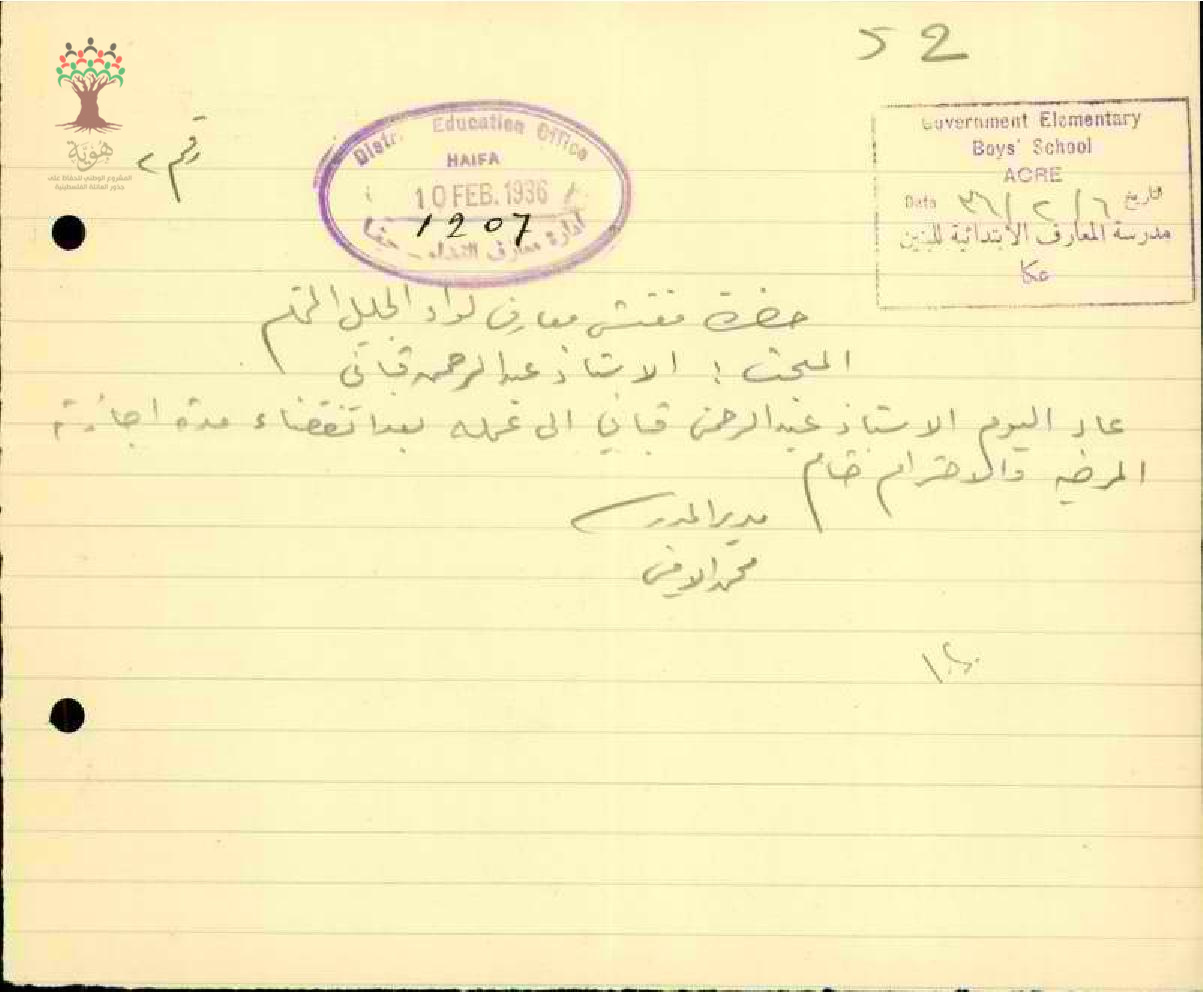 52
هوية
المشروع الوطني للحفاظ على
جذور العائلة الفلسطينية
رقم ٢
Distr. Education Office
HAIFA
10 FEB. 1936
1207
ادارة معارف اللواء - حيفا
Government Elementary
Boys' School
ACRE
Date ٣٦/٢/٦ تاريخ
مدرسة المعارف الابتدائية للبنين
عكا
حضرة مفتش معارف لواء الجليل المحترم
المبحث : الاستاذ عبدالرحمن قباني
عاد اليوم الاستاذ عبدالرحمن قباني الى عمله بعد انقضاء مدة اجازته
المرضيه والاحترام ختام
مدير المدرسة
محمد